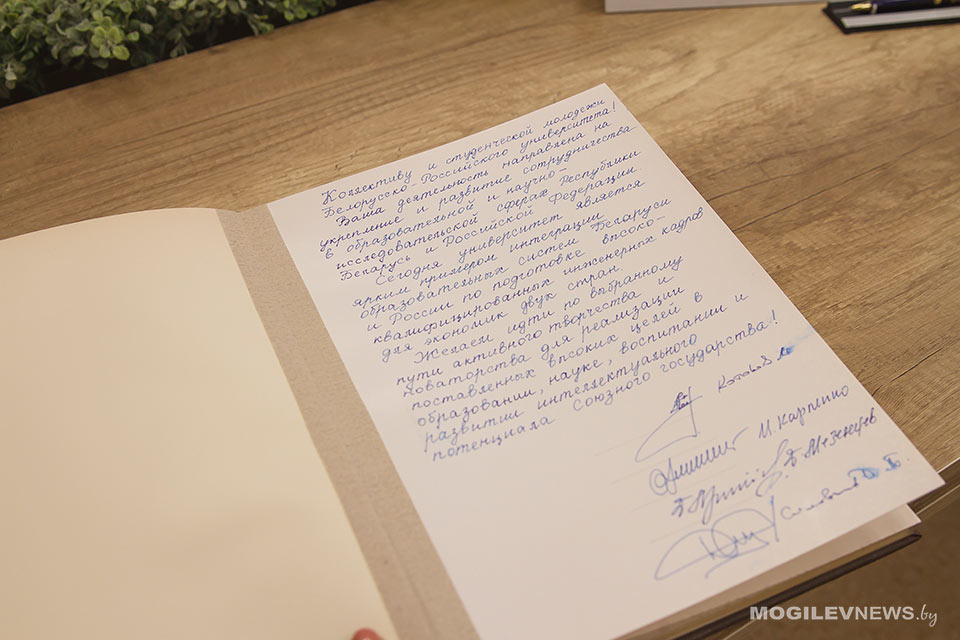 Коллективу и студенческой молодежи
Белорусско-Российского университета!
Ваша деятельность направлена на
укрепление и развитие сотрудничества
в образовательной и научно-
исследовательской сферах Республики
Беларусь и Российской Федерации.
Сегодня университет является
ярким примером интеграции
образовательных систем Беларуси
и России по подготовке высоко-
квалифицированных инженерных кадров
для экономик двух стран.
Желаем идти по выбранному
пути активного творчества и
новаторства для реализации
поставленных высоких целей в
образовании, науке, воспитании и
развитии интеллектуального
потенциала Союзного государства!
И. Карпенко
Д. Мезенцев
MOGILEVNEWS.by